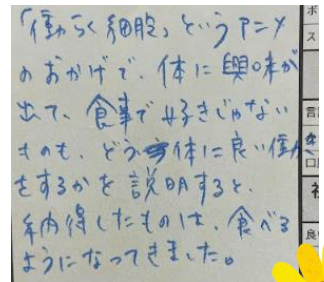 「働らく細胞」というアニメ
のおかげで、体に興味が
出て、食事で好きじゃない
ものも、どう体に良い働
をするかを説明すると、
納得したものは、食べる
ようになってきました。
ス